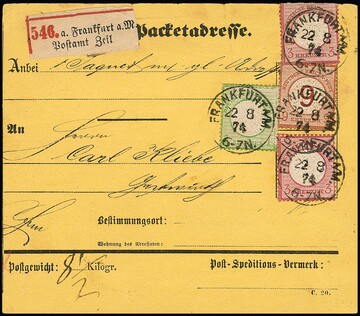 546. a. Frankfurt a.M.
Postamt Zeil
Packetadresse.
Anbei 1 Paquet
FRANKFURT A.M.
22 8
74
6-7N.
9
FRANKFURT A.M.
22 8
74
6-7N.
FRANKFURT A.M.
22 8
74
6-7N.
FRANKFURT A.M.
22 8
74
6-7N.
An
Herrn
Carl Kliebe
Bestimmungsort:
Wohnung des Adressaten:
Postgewicht: 8 1/2 Kilogr.
Post-Speditions-Vermerk:
C. 20.